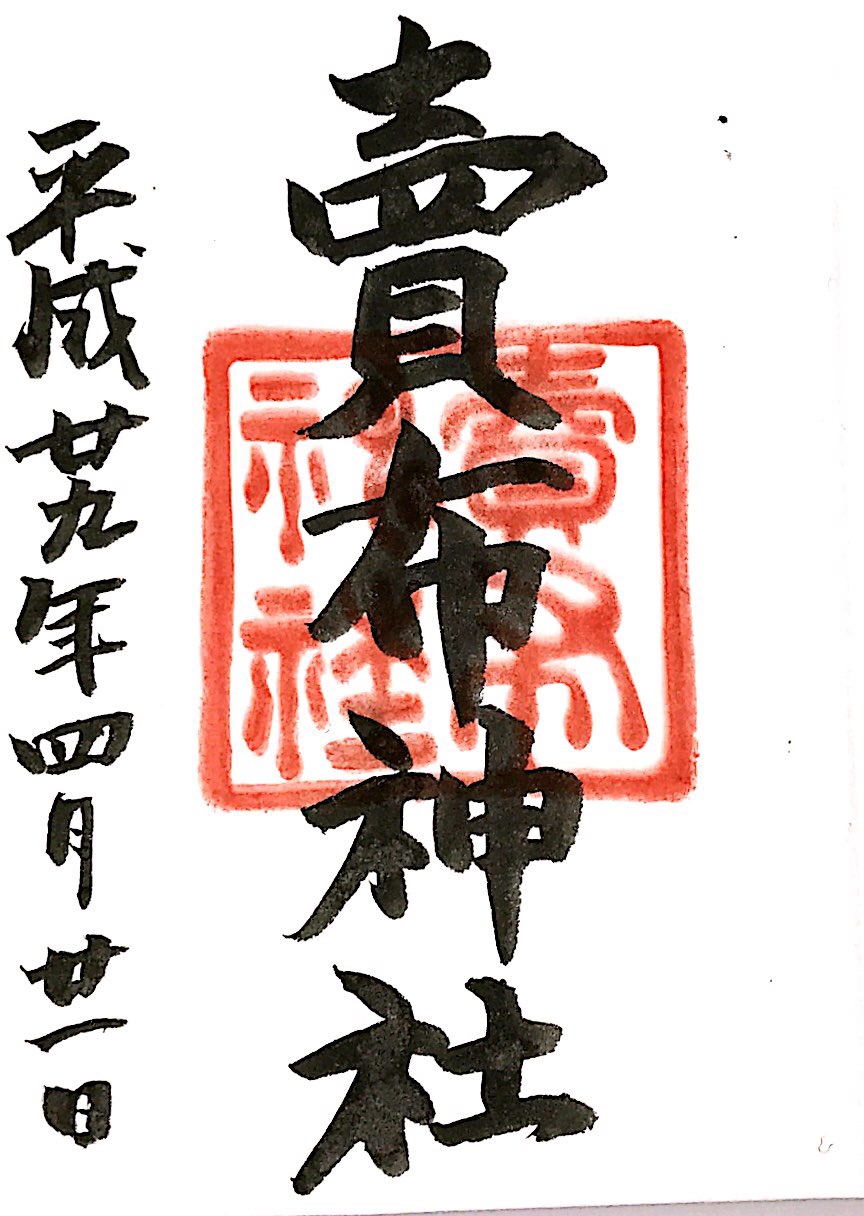 賣布神社
賣布
神社
平成廿九年四月廿一日